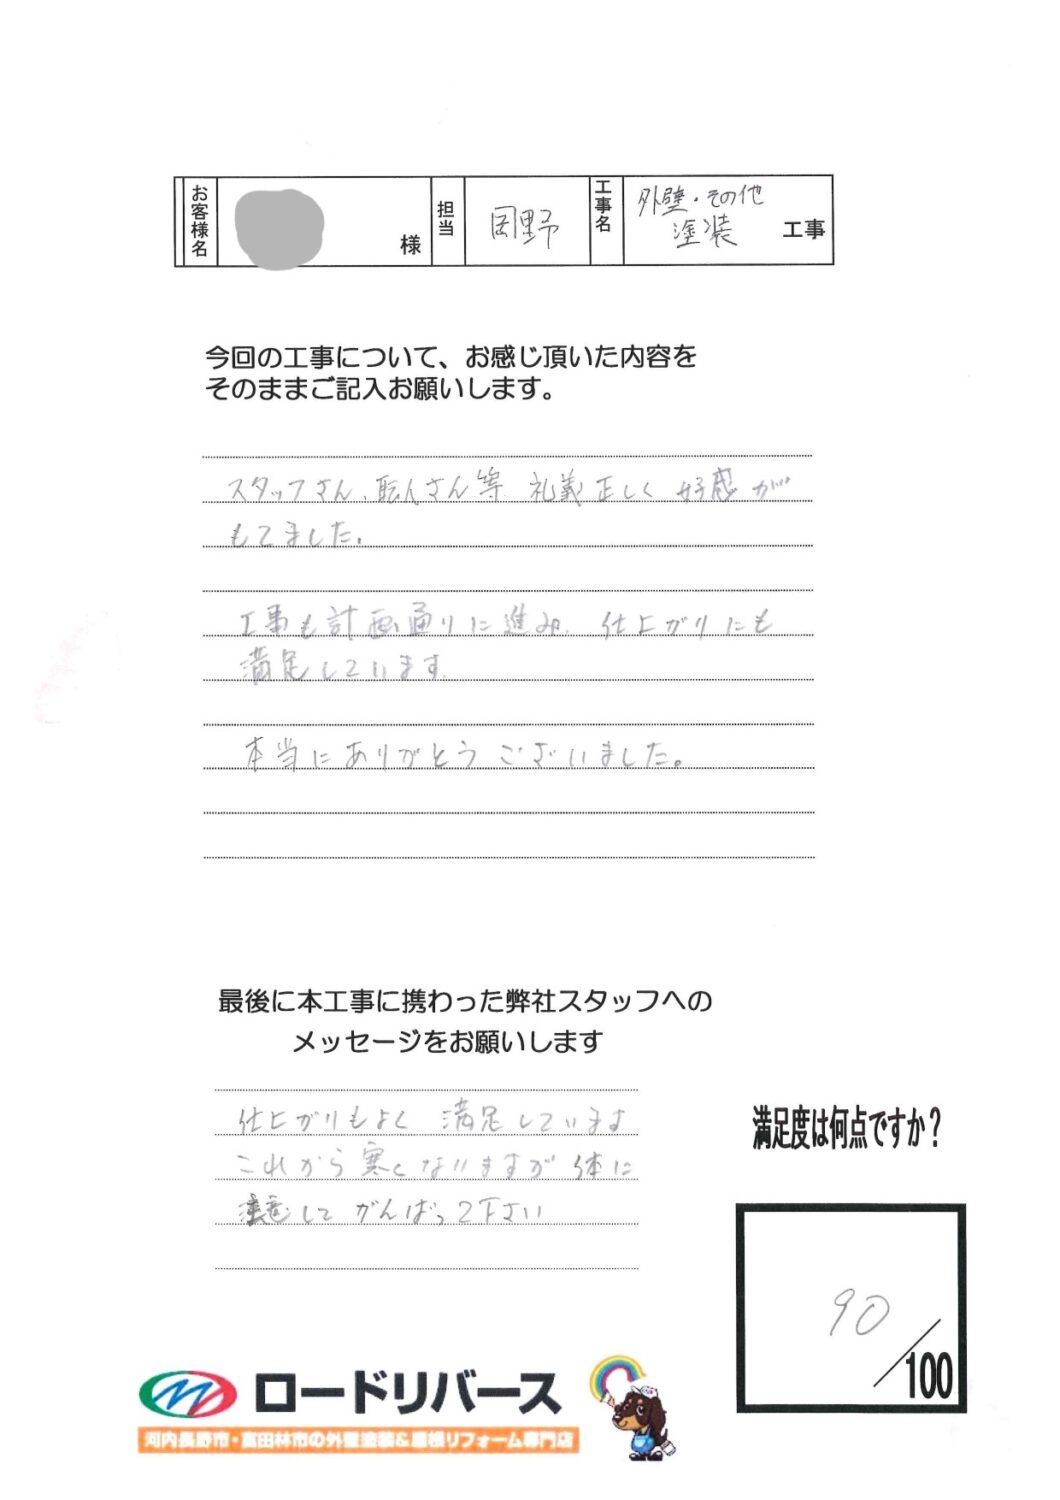 お客様名 様 担当 岡野 工事名 外壁・その他
塗装 工事
今回の工事について、お感じ頂いた内容を
そのままご記入お願いします。
スタッフさん、職人さん等 礼義正しく 好感が
もてました。
工事も計画通りに進み、仕上がりにも
満足しています。
本当にありがとうございました。
最後に本工事に携わった弊社スタッフへの
メッセージをお願いします
仕上がりもよく 満足しています
これから寒くなりますが 体に
注意して がんばって下さい
満足度は何点ですか？
90
/100
ロードリバース
河内長野市・富田林市の外壁塗装&屋根リフォーム専門店